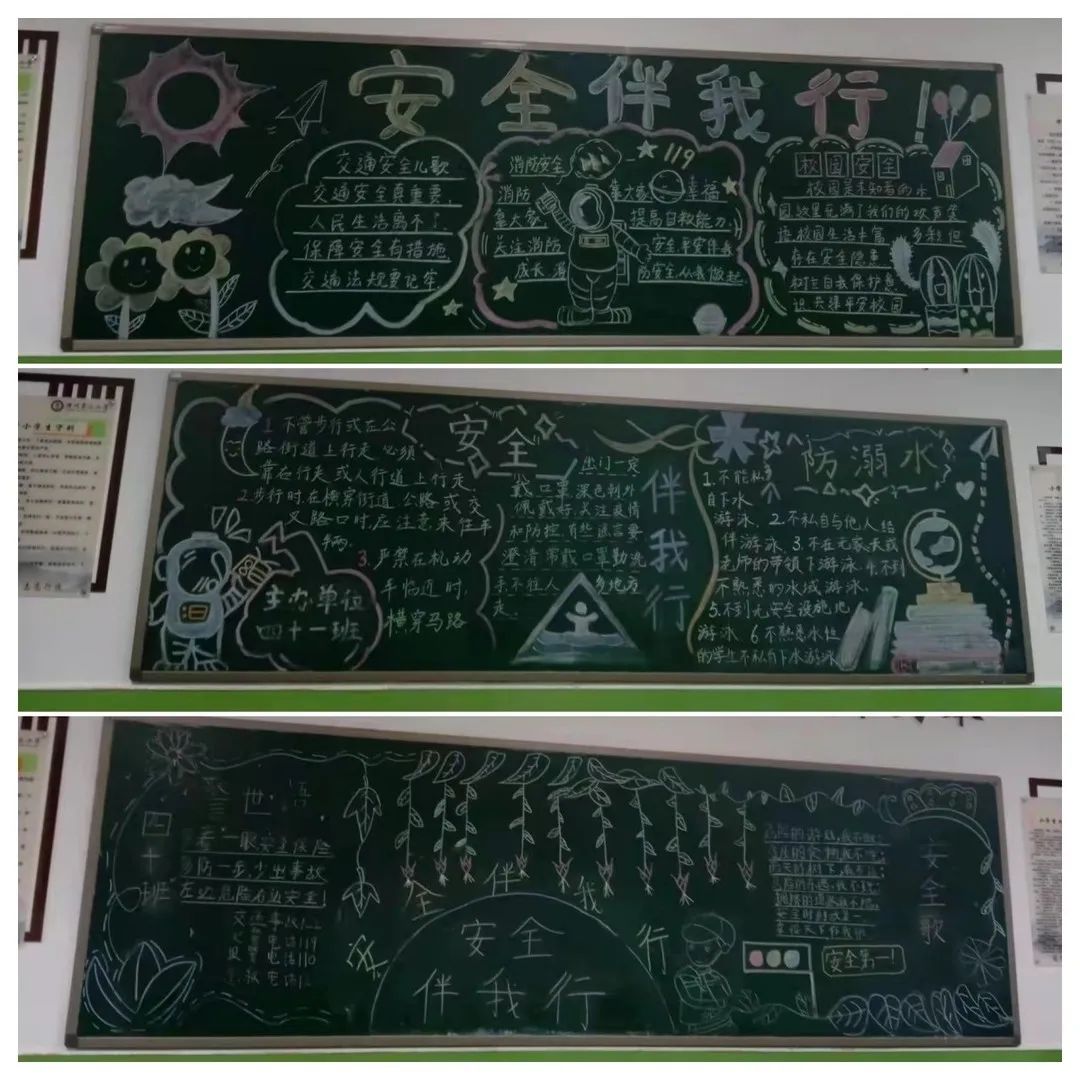 安全伴我行！
交通安全儿歌
交通安全真重要，
人民生活离不了，
保障安全有措施
交通法规要记牢，
消防安全
119
消防 靠大家 幸福
靠大家 提高自救能力
关注消防 安全
成长 防安全 从我做起
校园安全
校园是求知者的水
园，这里充满了我们的欢声笑
语校园生活丰富 多彩但
存在安全隐患
树立自我保护意
识 共建平安校园
小学生守则
1. 不管步行或在公
路街道上行走必须
靠右行走或人行道上行走
2.步行时在横穿街道 公路或交
叉路口时，应注意来往车
辆。
3.严禁在机动
车临近时，
横穿马路
主办单位
四十一班
安全
伴我行
出门一定
戴口罩 深色朝外
佩戴好，关注疫情
和防控，有些谣言要
澄清常戴口罩勤洗
手，不往人 多地方
走。
防溺水
1.不能私
自下水
游泳，2.不私自与他人结
伴游泳，3.不在无家长或
老师的带领下游泳，4.不到
不熟悉的水域游泳，
5.不到无安全设施，地
游泳，6.不熟悉水性
的学生不私自下水游泳
四十班
警世语
多看一眼安全保险
多防一步少出事故
左边危险右边安全
交通事故122
火警电话119
报警电话110
急救电话
安全伴我行
安全
伴我行
安全第一！
安全歌